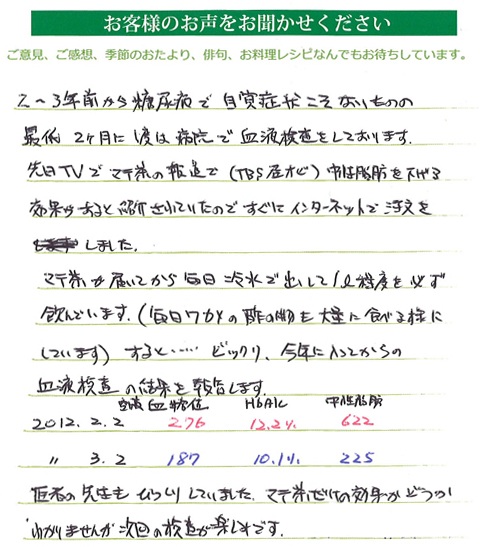 お客様のお声をお聞かせください
ご意見、ご感想、季節のおたより、俳句、お料理レシピなんでもお待ちしています。
2〜3年前から糖尿病で自覚症状こそないものの
最低2ヶ月に1度は病院で血液検査をしております。
先日TVでマテ茶の報道で(TBS度オビ)中性脂肪を下げる
効果があると紹介されていたのですぐにインターネットで注文を
しました。
マテ茶が届いてから毎日冷水で出して1ℓ程度を必ず
飲んでいます。(毎日ワカメの酢の物も大量に食べる様に
しています) すると…… ビックリ、今年に入ってからの
血液検査の結果を報告します。
空腹血糖値 HbA1c 中性脂肪
2012.2.2 276 12.2% 622
〃 3.2 187 10.1% 225
医者の先生もびっくりしていました。マテ茶だけの効果かどうか
わかりませんが次回の検査が楽しみです。